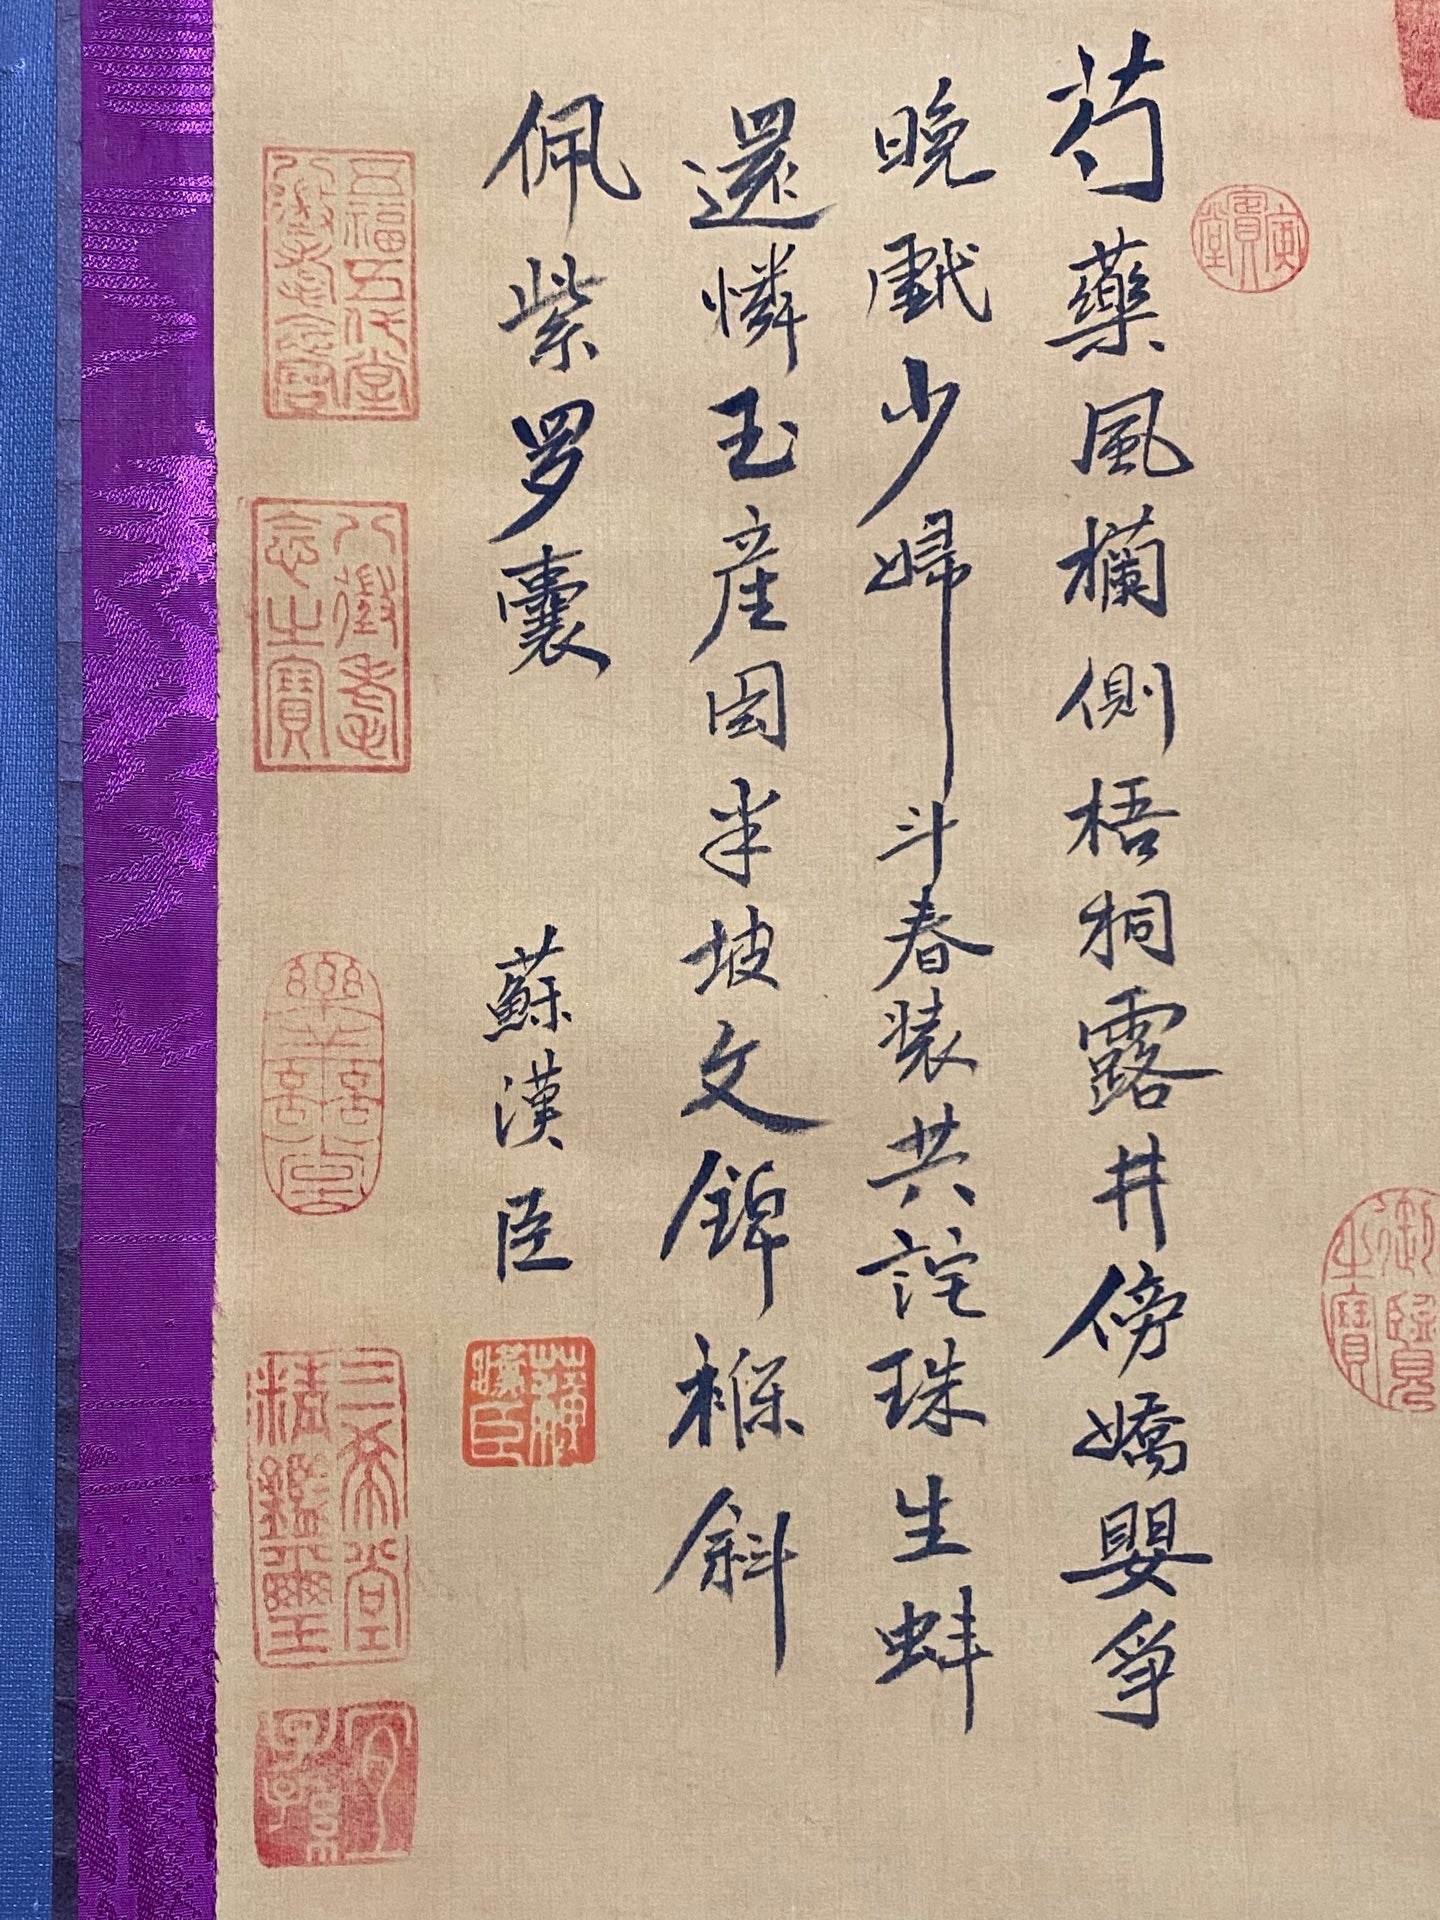 芍藥風欄側梧桐露井傍嬌嬰爭
晚戲少婦斗春装共詫珠生蚌
還憐玉產田半坡文錦褓斜
佩紫罗囊
蘇漢臣
蘇漢臣
寅賓堂
御覽之寶
五福五代堂
八徵耄念之寶
樂善堂
三希堂
精鑑璽
宜子孫